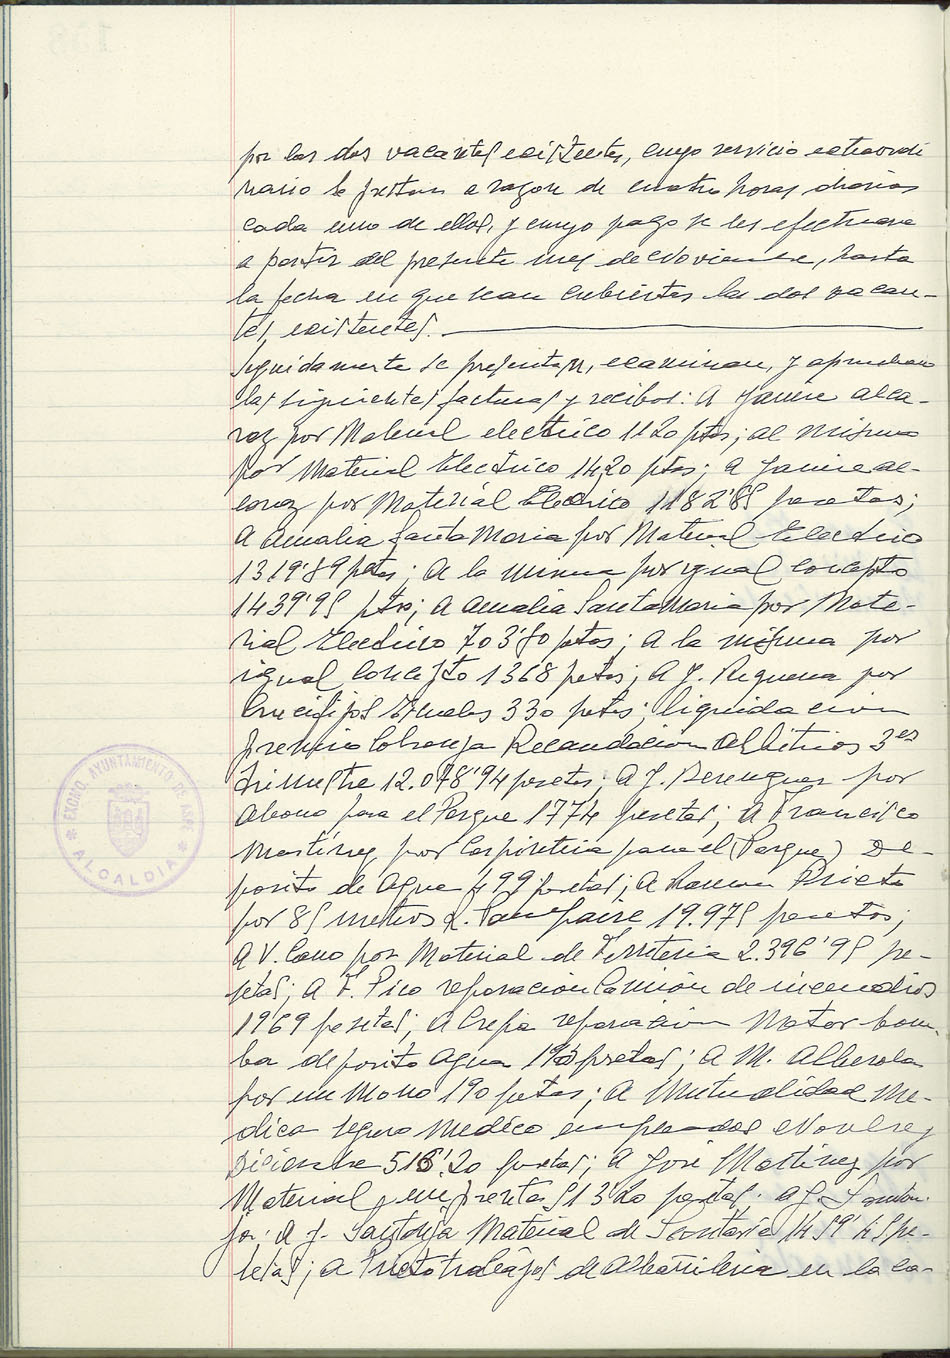 por las dos vacantes existentes, cuyo servicio extraordi
nario le prestan a razon de cuatro horas diarias
cada uno de ellos, y cuyo pago se les efectuara
a partir del presente mes de Noviembre, hasta
la fecha en que sean cubiertas las dos vacan-
tes, existentes.
Seguidamente se presentan, examinan, y aprueban
las siguientes facturas y recibos: A Jaime Alca-
raz por Material electrico 1120 ptas; al mismo
por Material Electrico 1420 ptas; a Jaime Al-
caraz por Material Electrico 1182'85 pesetas;
A Amalia Santa Maria por Material Electrico
1319'89 ptas; a la misma por igual concepto
1439'95 ptas; a Amalia Santa Maria por Mate-
rial Electrico 703'80 ptas; A la misma por
igual concepto 1368 petas; A J. Requena por
Crucifijos 330 petas; liquidacion
premio Cobranza Recaudacion Arbitrios 3er
trimestre 12.078'94 pesetas; A J. Berenguer por
abono para el Parque 1774 pesetas; A Francisco
Martinez por Carpinteria para el (Parque) De-
posito de Agua 499 pesetas; A Ramon Prieto
por 85 metros 19.975 pesetas;
A V. Cano por Material de Ferreteria 2.396'95 pe-
setas; A F. Pico reparacion Camion de incendios
1969 pesetas; A Crespo reparacion Motor bom-
ba deposito agua pesetas; A M. Alberola
por un Mono 190 petas; A Mutualidad Me-
dica seguro Medico empleados Novbre y
Diciembre 516'20 pesetas; A José Martinez por
Material imprenta 513'20 pesetas. a J. Santon-
ja: A J. Santonja Material de Secretaria 1459'45 pe-
setas; A Prieto trabajos de Albañileria en la ca-
EXCMO. AYUNTAMIENTO DE ASPE
* ALCALDIA *